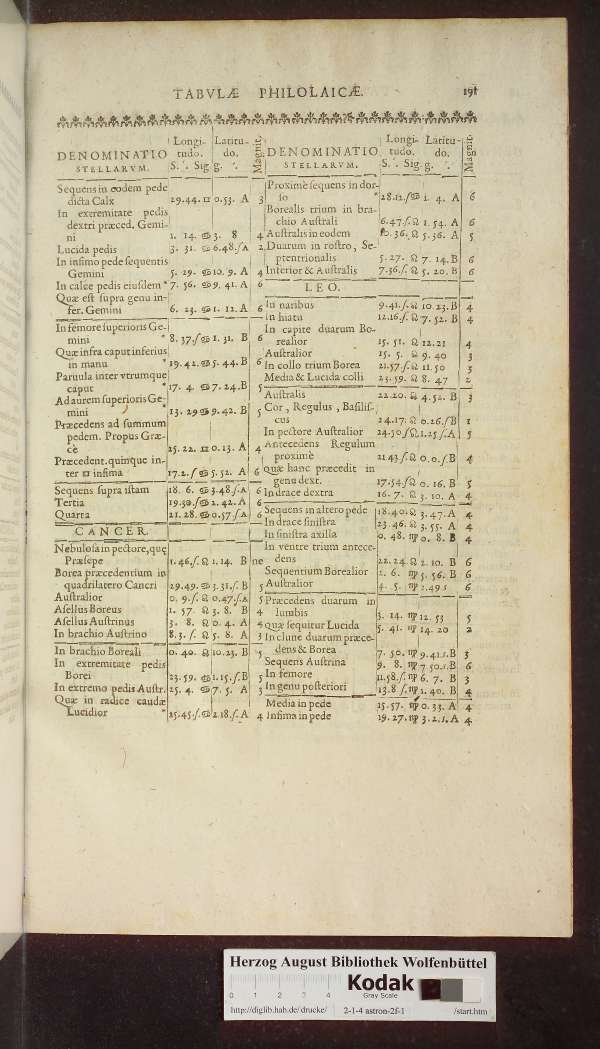 TABVLÆ PHILOLAICÆ.
191
DENOMINATIO
STELLARVM.
Longi-
tudo.
S. Sig.
Latitu-
do.
g.
Magnit.
Sequens in eodem pede
dicta Calx 29.44. ♊ 0.53. A 3
In extremitate pedis
dextri præced. Gemi-
ni 1. 14. ♋ 3. 8 4
Lucida pedis 3. 31. ♋ 6.48.ſ A 2
In infimo pede sequentis
Gemini 5. 29. ♋ 10. 9. A 4
In calce pedis eiusdem * 7. 56. ♋ 9. 41. A 6
Quæ est supra genu in-
fer. Gemini 6. 23. ♋ 1. 12. A 6
In femore superioris Ge-
mini * 8. 37.ſ ♋ 1. 31. B 6
Quæ infra caput inferius
in manu * 19.42. ♋ 5. 44. B 6
Paruula inter vtrumque
caput * 17. 4. ♋ 7. 24. B 5
Ad aurem superioris Ge-
mini * 13. 29 ♋ 9. 42. B 5
Præcedens ad summum
pedem. Propus Græ-
cè 25. 22. ♊ 0.13. A 4
Præcedent. quinque in-
ter ♊ infima * 17.2.ſ ♋ 5. 52. A 6
Sequens supra istam 18. 6. ♋ 3.48.ſ A 6
Tertia 19.30.ſ ♋ 2. 42. A 6
Quarta 21. 28. ♋ 0.57.ſ A 6
CANCER.
Nebulosa in pectore, quę
Præsepe 1.46.ſ. ♌ 1. 14. B ne
Borea præcedentium in
quadrilatero Cancri 29.49. ♋ 3.31.ſ. B 5
Australior 0. 9.ſ. ♌ 0.47.ſ A 5
Asellus Boreus 1. 57. ♌ 3. 8. B 4
Asellus Austrinus 3. 8. ♌ 0. 4. A 4
In brachio Austrino 8.3.ſ. ♌ 5. 8. A 3
In brachio Boreali 0. 40. ♌ 10.23. B 5
In extremitate pedis
Borei 23.59. ♋ 1.15.ſ. B 5
In extremo pedis Austr. 25. 4. ♋ 7. 5. A 3
Quæ in radice caudæ
Lucidior * 25.45.ſ. ♋ 2.18.ſ. A 4
DENOMINATIO
STELLARVM.
Longi-
tudo.
S. Sig.
Latitu-
do.
g.
Magnit.
Proximè sequens in dor-
so * 28.12.ſ ♋ 1. 4. A 6
Borealis trium in bra-
chio Australi 6.47.ſ. ♌ 1. 54. A 6
Australis in eodem 10. 36. ♌ 5. 36. A 5
Duarum in rostro, Se-
ptentrionalis 5. 27. ♌ 7. 14. B 6
Interior & Australis 7.56.ſ. ♌ 5. 20. B 6
LEO.
In naribus 9.41.ſ. ♌ 10. 23. B 4
In hiatu 12.16.ſ. ♌ 7. 52. B 4
In capite duarum Bo-
realior 15. 51. ♌ 12. 21 4
Australior 15. 5. ♌ 9. 40 3
In collo trium Borea 21.57.ſ. ♌ 11. 50 3
Media & Lucida colli 23. 59. ♌ 8. 47 2
Australis 22. 20. ♌ 4. 52. B 3
Cor, Regulus, Basilis-
cus 24.17. ♌ 0.26.ſ B 1
In pectore Australior 24.50.ſ ♌ 1.25.ſ. A 5
Antecedens Regulum
proximè 21.43.ſ ♌ 0. 0.ſ B 4
quæ hanc præcedit in
genu dext. 17.54.ſ ♌ 0. 16. B 5
In drace dextra 16. 7. ♌ 3. 10. A 4
Sequens in altero pede 18.40. ♌ 3. 47. A 4
In drace sinistra 23.46. ♌ 3. 55. A 4
In sinistra axilla 0. 48. ♍ 0. 8. B 4
In ventre trium antece-
dens 22.24 ♌ 2. 10. B 6
Sequentium Borealior 2. 6. ♍ 5. 56. B 6
Australior 4. 5. ♍ 2.49 s 6
Præcedens duarum in
lumbis 3. 14. ♍ 12. 53 5
quæ sequitur Lucida 5. 41. ♍ 14. 20 2
In clune duarum præce-
dens & Borea 7. 50. ♍ 9.41.s. B 3
Sequens Austrina 9. 8. ♍ 7 50.s. B 6
In femore 11.58.ſ. ♍ 6. 7. B 3
In genu posteriori 13.8 ſ. ♍ 1. 40. B 4
Media in pede 15.57. ♍ 0. 33. A 4
Infima in pede 19. 27. ♍ 3. 2.s. A 4
Herzog August Bibliothek Wolfenbüttel
0 1 2 3 4
Kodak
Gray Scale
http://diglib.hab.de/drucke/ 2-1-4 astron-2f-1 /start.htm